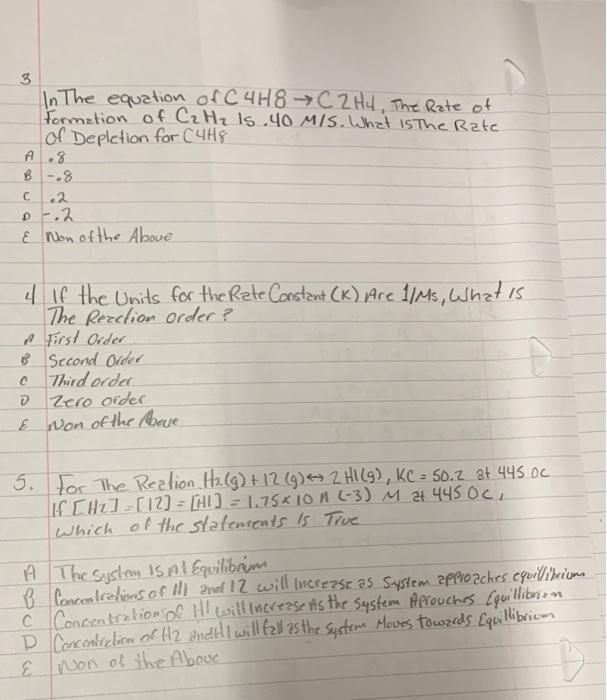 3
In The equation of C4H8 → C2H4, The Rate of
formation of C2H2 Is .40 M/S. What Is The Rate
Of Depletion for C4H8
A .8
B -.8
C .2
D -.2
E Non of the Above
4 If the Units for the Rate Constant (K) Are 1/Ms, What is
The Reaction order?
A First Order
B Second Order
C Third order
D Zero order
E Non of the Above
5. For The Reation H2(g) + I2 (g) ↔ 2 HI(g), KC = 50.2 at 445 OC
If [H2] = [I2] = [HI] = 1.75 x 10 ^ (-3) M at 445 OC,
Which of the statements Is True
A The System IS At Equilibrium
B Concentrations of HI and I2 will Increase as System approaches equillibrium
C Concentration of HI will Increase As the System Aprouches Equillibrium
D Concentration of H2 and HI will fall as the System Moves towards Equillibrium
E Non of the Above